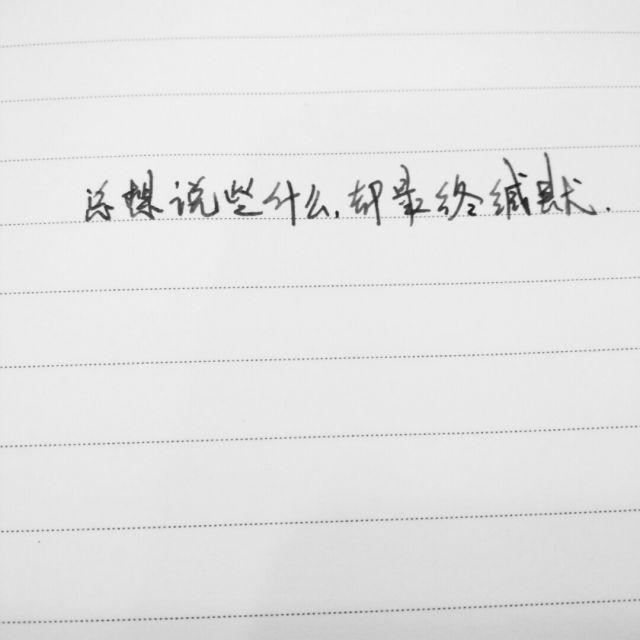 总想说些什么,却最终缄默.